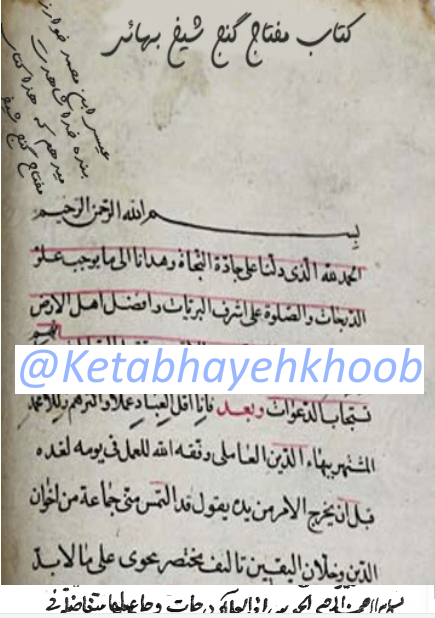 کتاب مفتاح گنج شیخ بهائی
بنده خدا شاهدت
میدهم که هذا کتاب
مفتاح گنج شیخ
بسم الله الرحمن الرحیم
الحمد لله الذی دلنا علی جادة النجاة وهدانا الی ما یوجب علو
الدرجات والصلوة علی اشرف البریات وافضل اهل الارض
@Ketabhayehkhoob
تستجاب الدعوات وبعد فان اقل العباد عملا واکثرهم زللا محمد
المشتهر ببهاء الدین العاملی وفقه الله للعمل فی یومه لغده
قبل ان یخرج الامر من یده یقول قد التمس منی جماعة من اخوان
الدین وخلان الیقین تالیف مختصر یحوی علی ما لابد